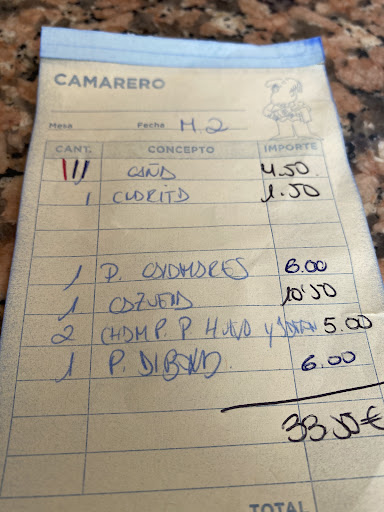 CAMARERO
Mesa Fecha M.2
CANT. CONCEPTO IMPORTE
III CAÑA 4.50
1 CLARITA 1.50
1 P. CALAMARES 6.00
1 CAZUELA 10'50
2 CHAMP. P. HUEVO y 5.00
1 P. 6.00
33'50€
TOTAL